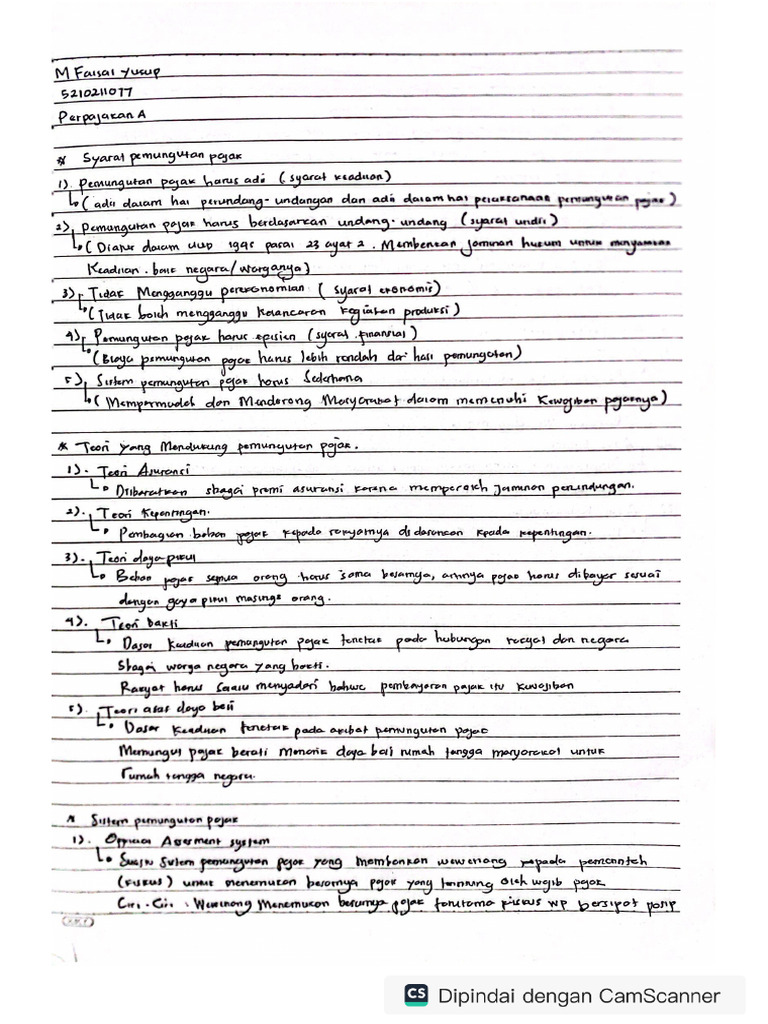 M Faisal Yusup
5210211077
Perpajakan A
* Syarat pemungutan pajak
1). Pemungutan pajak harus adil (syarat keadilan)
(adil dalam hal perundang-undangan dan adil dalam hal pelaksanaan pemungutan pajak)
2). Pemungutan pajak harus berdasarkan undang-undang (syarat
(Diatur dalam UUD 1945 pasal 23 ayat 2. Memberikan jaminan hukum untuk menyatakan
Keadilan. baik negara/warganya)
3). Tidak Mengganggu perekonomian (syarat ekonomis)
(Tidak boleh mengganggu kelancaran kegiatan produksi)
4). Pemungutan pajak harus episien (syarat finansial)
(Biaya pemungutan pajak harus lebih rendah dari hasil pemungutan)
5). Sistem pemungutan pajak harus Sederhana
(Mempermudah dan Mendorong Masyarakat dalam memenuhi Kewajiban pajaknya)
* Teori yang Mendukung pemungutan pajak.
1). Teori Asuransi
Diibaratkan sbagai premi asuransi karena memperoleh jaminan perlindungan.
2). Teori Kepentingan.
Pembagian beban pajak kepada rakyatnya didasarkan kpada kepentingan.
3). Teori daya pikul
Beban pajak semua orang harus sama besarnya, artinya pajak harus dibayar sesuai
dengan gaya pikul masing2 orang.
4). Teori bakti
Dasar keadilan pemungutan pajak terletak pada hubungan rakyat dan negara
Sbagai warga negara yang bakti.
Rakyat harus selalu menyadari bahwa pembayaran pajak itu kewajiban
5). Teori asas daya beli
Dasar keadilan terletak pada akibat pemungutan pajak
Memungut pajak berati menarik daya beli rumah tangga masyarakat untuk
rumah tangga negara.
* Sistem pemungutan pajak
1). Official Assesment system
Suatu Sistem pemungutan pajak yang memberikan wewenang kepada pemerintah
(fiskus) untuk menemukan besarnya pajak yang terutang oleh wajib pajak
Ciri-Ciri : Wewenang Menemukan besarnya pajak terutama fiskus WP bersipat pasip
CS Dipindai dengan CamScanner